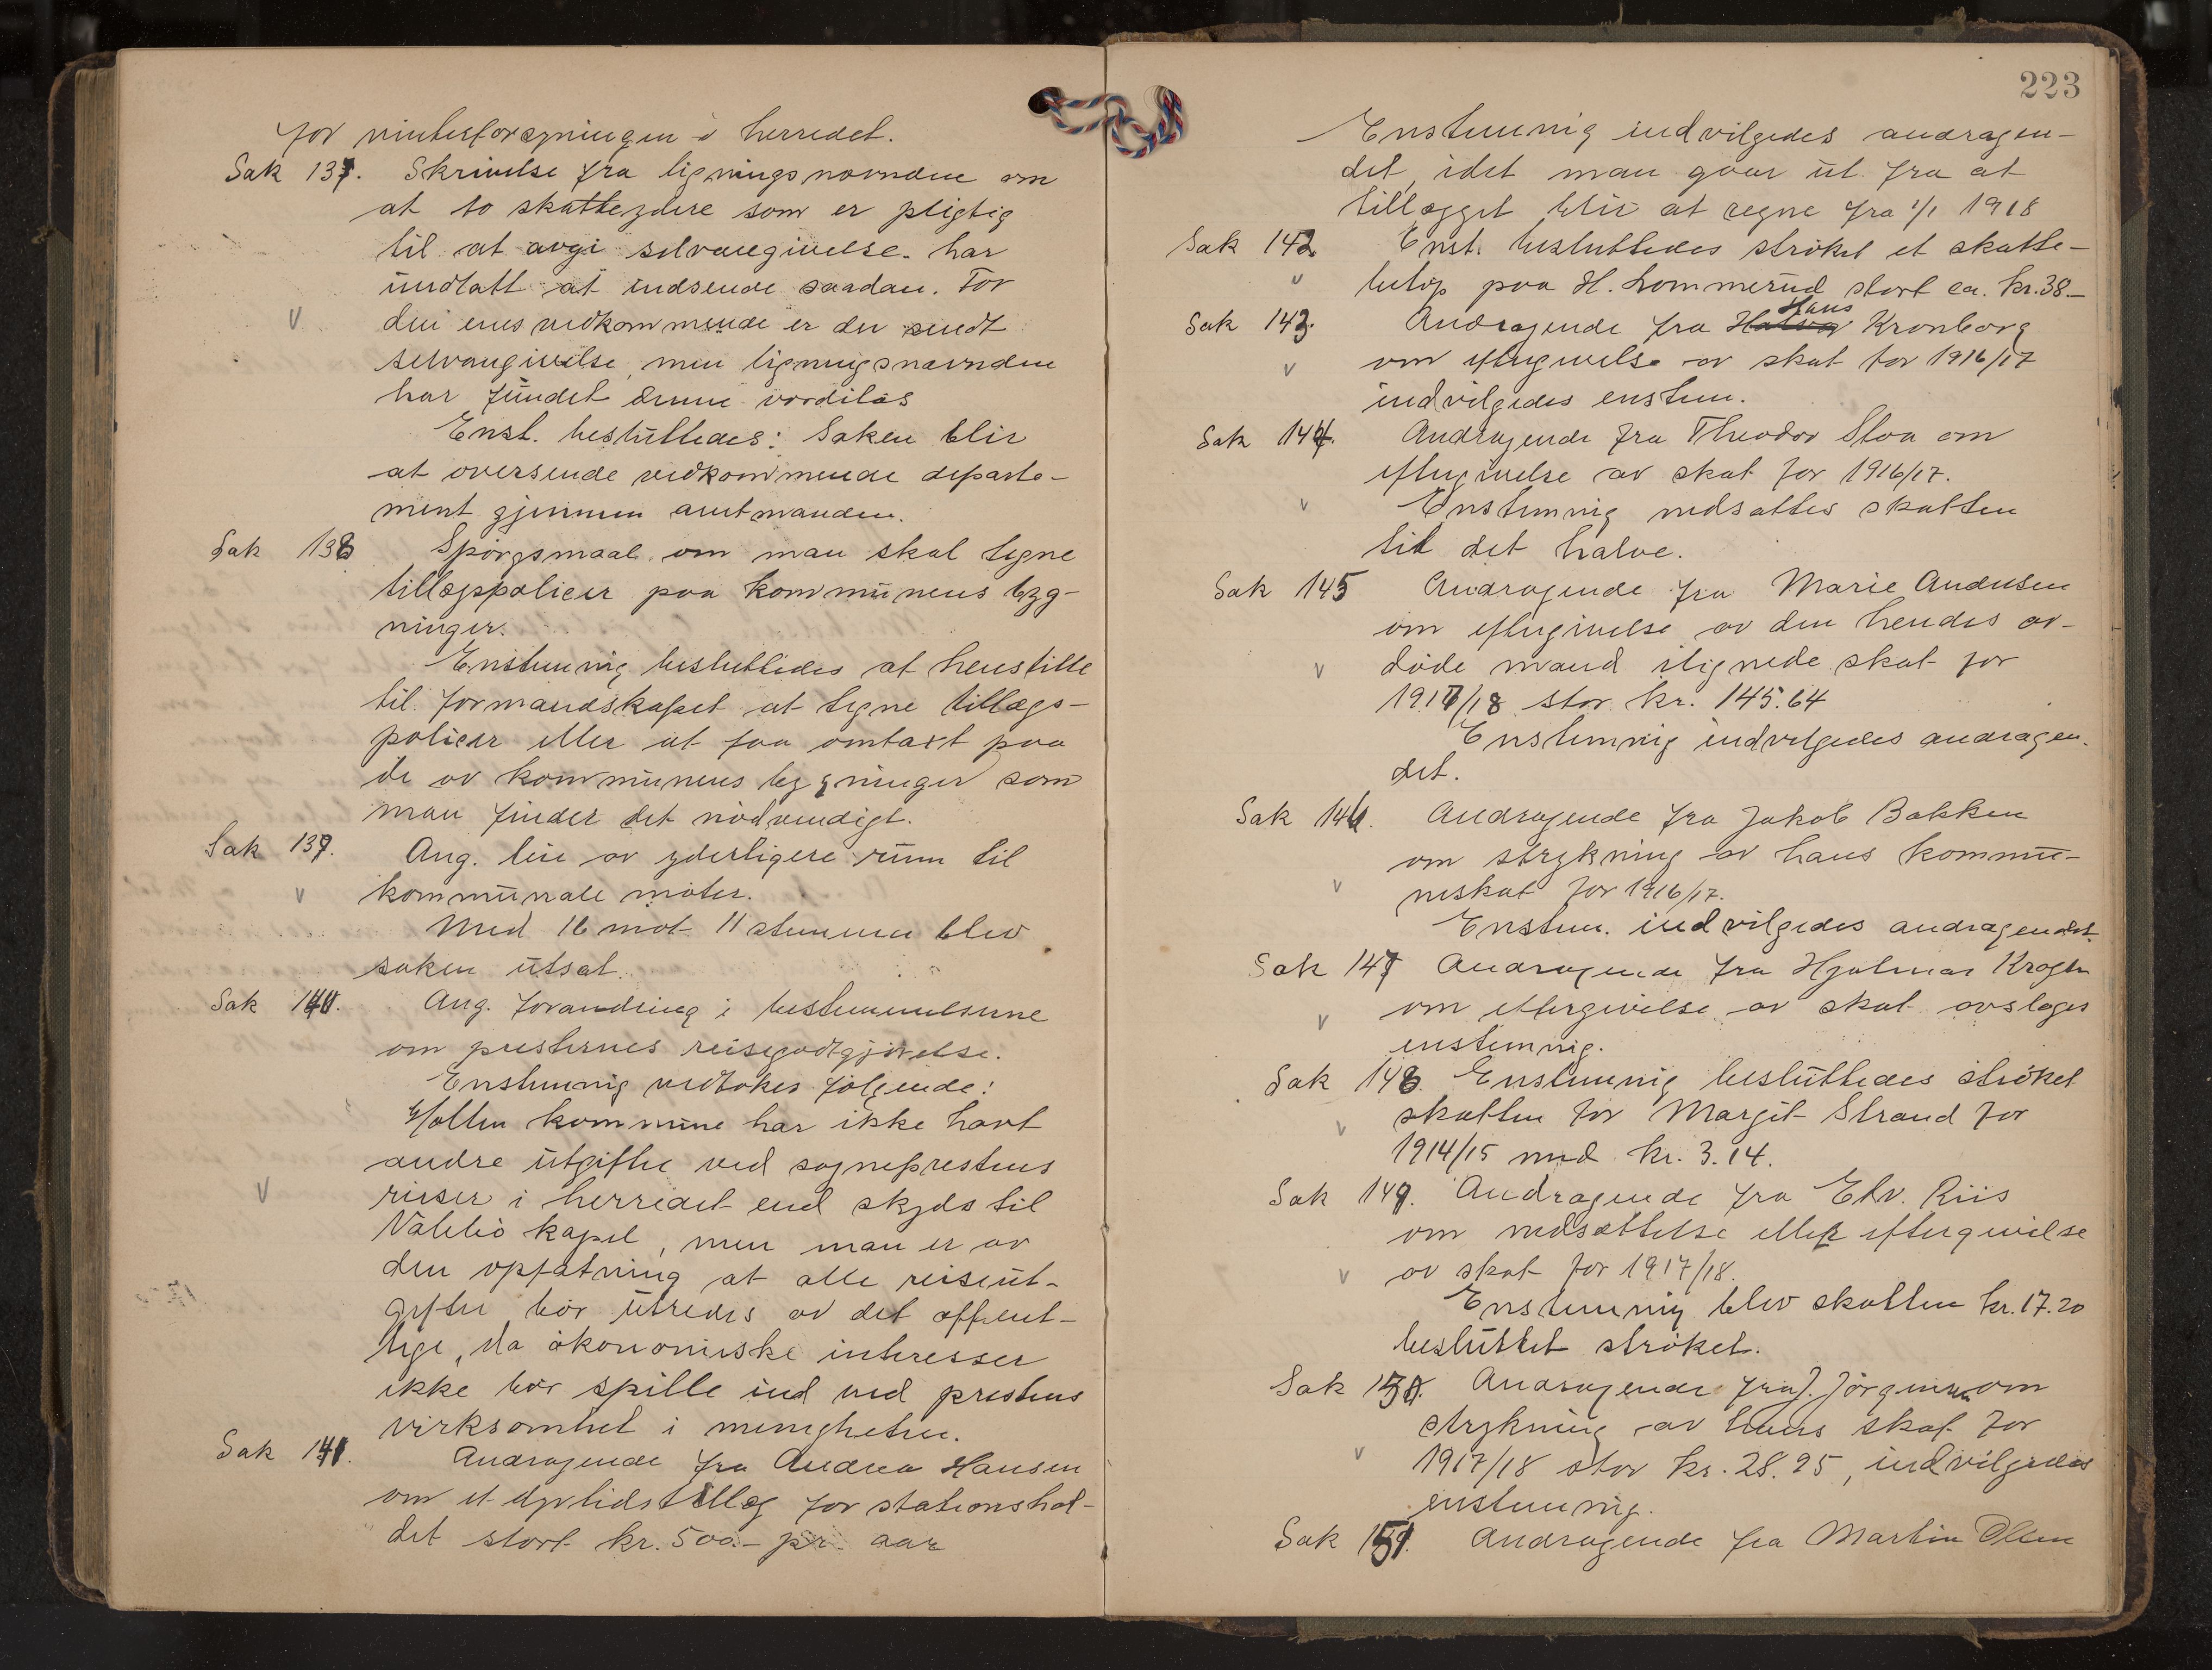 for vinterforsyningen i herredet.
Sak 137. Skrivelse fra ligningsnævnden om
at to skatteydere som er pligtig
til at avgi selvangivelse har
undlatt at indsende saadan. For
den enes vedkommende er der sendt
selvangivelse, men ligningsnævnden
har fundet denne værdiløs
Enst. besluttedes: Saken blir
at oversende vedkommende departe-
ment gjennem amtmanden.
Sak 138 Spörgsmaal om man skal tegne
tillægspolicer paa kommunens byg-
ninger.
Enstemmig besluttedes at henstille
til formandskapet at tegne tillægs-
policer eller at faa omtaxt paa
de av kommunens bygninger som
man finder det nödvendigt.
Sak 139. Ang. leie av yderligere rum til
kommunale möter.
Med 16 mot 11 stemmer blev
saken utsat.
Sak 140. Ang. forandring i bestemmelserne
om presternes reisegodtgjörelse.
Enstemmig vedtokes fölgende:
Holten kommune har ikke havt
andre utgifter ved sogneprestens
reiser i herredet end skyds til
Vålebö kapel, men man er av
den opfatning at alle reiseut-
gifter bör utredes av det offent-
lige, da ökonomiske interesser
ikke bör spille ind ved prestens
virksomhet i menigheten.
Sak 141. Andragende fra Andrea Hansen
om et dyrtidstillæg for stationshol-
det stort kr. 500.- pr. aar
223
Enstemmig indvilgedes andragen-
det, idet man gaar ut fra at
tillægget blir at regne fra 1/1 1918
Sak 142. Enst. besluttedes ströket et skatte-
belöp paa H. Lommerud stort ca. kr. 38.-
Sak 143. Andragende fra Hans Kronborg
om eftergivelse av skat for 1916/17
indvilgedes enstem.
Sak 144. Andragende fra Theodor Stoa om
eftergivelse av skat for 1916/17.
Enstemmig nedsattes skatten
til det halve.
Sak 145 Andragende fra Marie Andersen
om eftergivelse av den hendes av-
döde mand ilignede skat for
1917/18 stor kr. 145.64
Enstemmig indvilgedes andragen-
det.
Sak 146. Andragende fra Jakob Bakken
om strykning av hans kommu-
neskat for 1916/17.
Enstem. indvilgedes andragendet.
Sak 147 Andragende fra Hjalmar Krogh
om eftergivelse av skat avsloges
enstemmig.
Sak 148. Enstemmig besluttedes ströket
skatten for Margit Strand for
1914/15 med kr. 3.14.
Sak 149. Andragende fra Elv. Riis
om nedsættelse eller eftergivelse
av skat for 1917/18.
Enstemmig blev skatten kr. 17.20
besluttet ströket.
Sak 150. Andragende fra J. Jörgensen om
strykning av hans skat for
1917/18 stor kr. 28.95, indvilgedes
enstemmig.
Sak 151. Andragende fra Martin Olsen